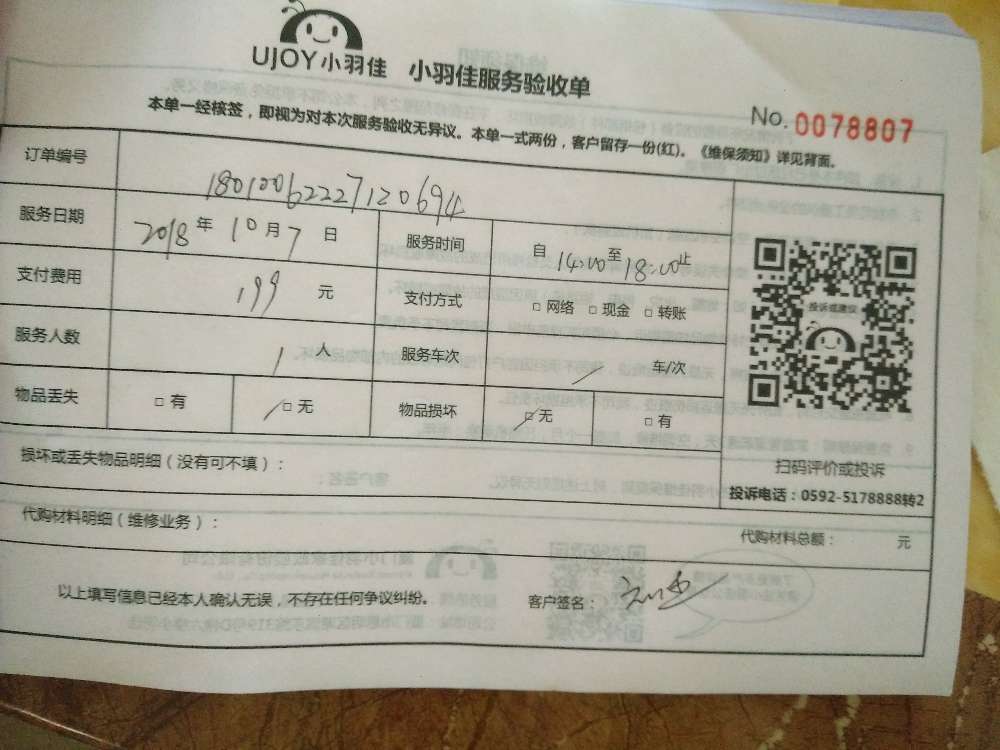 UJOY小羽佳 小羽佳服务验收单
No. 0078807
本单一经核签，即视为对本次服务验收无异议。本单一式两份，客户留存一份(红)。《维保须知》详见背面。
订单编号 18010062227120694
服务日期 2018年10月7日 服务时间 自14:00至18:00止
支付费用 199元 支付方式 □网络 □现金 □转账
服务人数 1人 服务车次 / 车/次
物品丢失 □有 □无 物品损坏 □无 □有
投诉或建议
扫码评价或投诉
投诉电话：0592-5178888转2
损坏或丢失物品明细（没有可不填）：
代购材料明细（维修业务）：
代购材料总额： 元
以上填写信息已经本人确认无误，不存在任何争议纠纷。 客户签名：